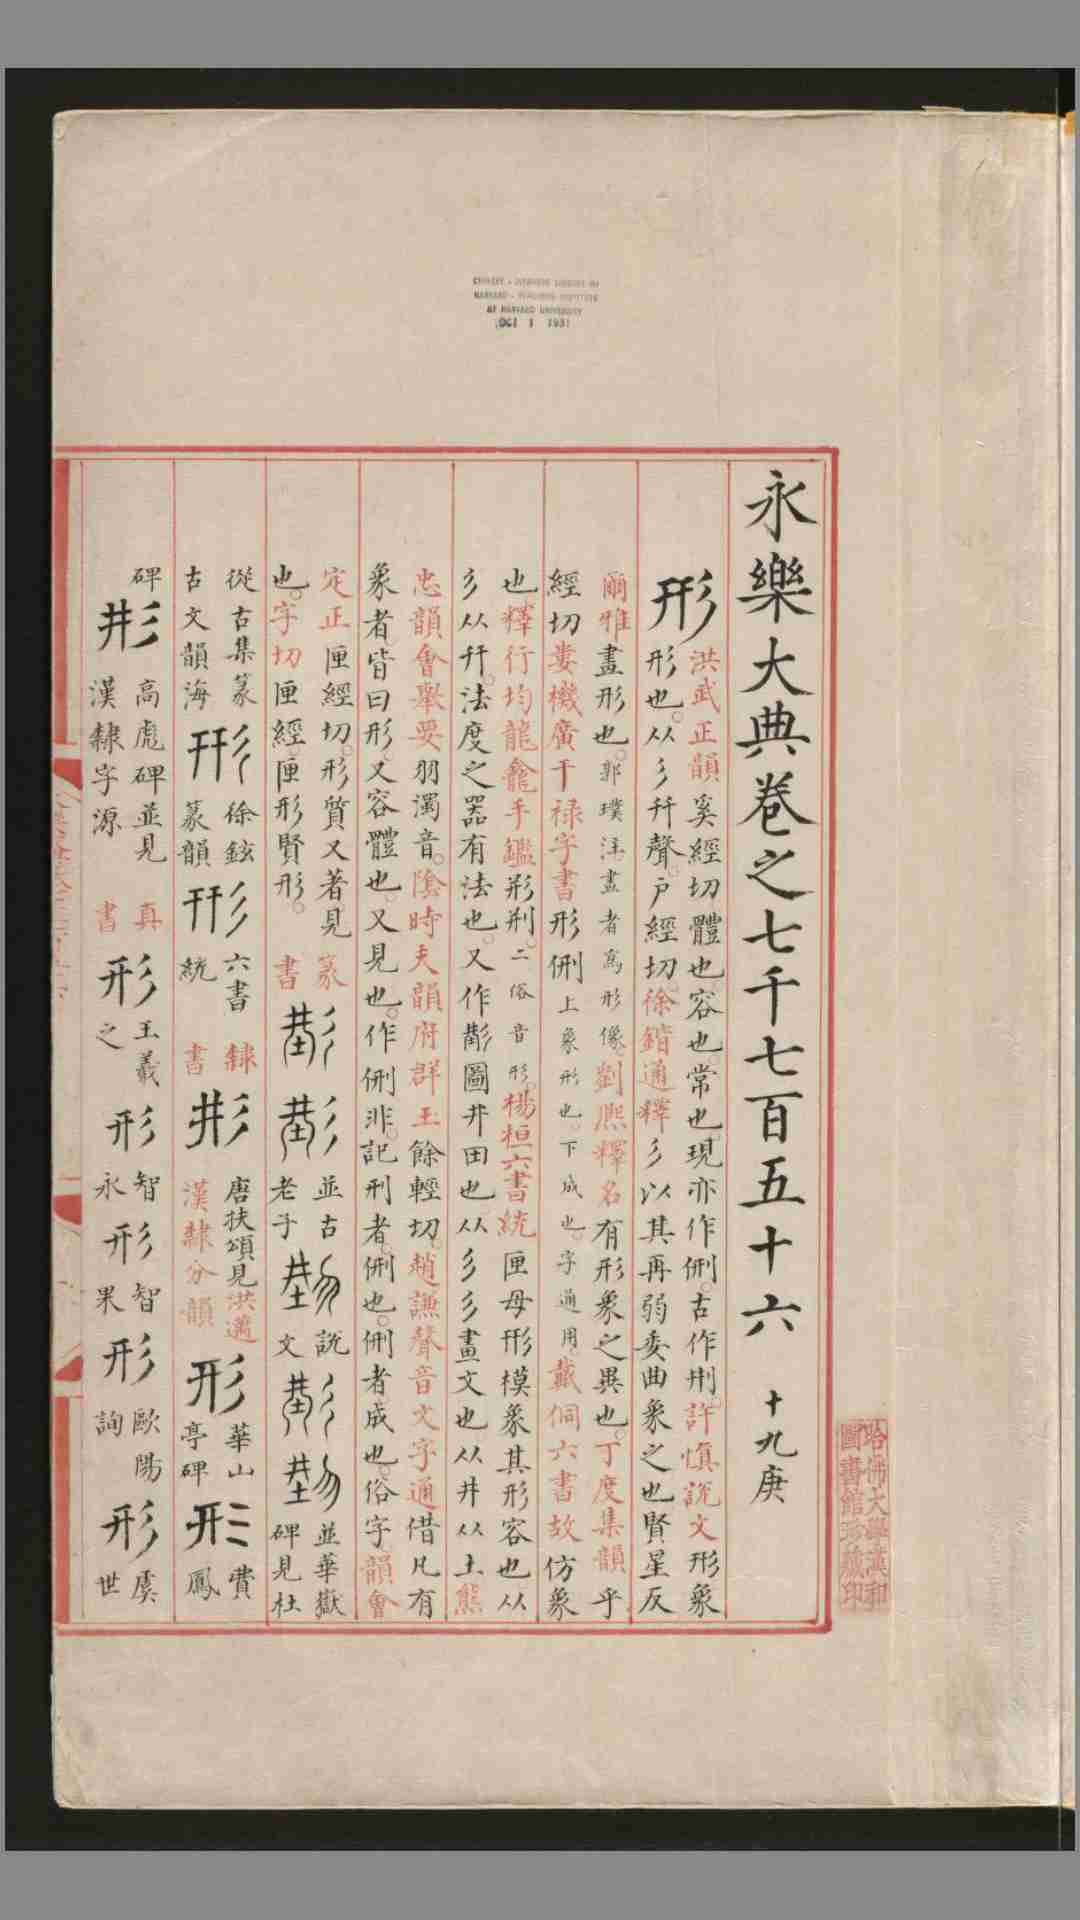 CHINESE - JAPANESE LIBRARY OF
HARVARD - YENCHING INSTITUTE
AT HARVARD UNIVERSITY
OCT 1 1931
永樂大典卷之七千七百五十六 十九庚
哈佛大學漢和
圖書館珍藏印
形
洪武正韻奚經切體也。容也。常也。現亦作侀。古作㓝。許慎說文形象
形也。从彡幵聲。户經切。徐鍇通釋彡以其再弱委曲象之也賢星反
爾雅畫形也。郭璞注。畫者為形像。劉熙釋名有形象之異也。丁度集韻乎
經切婁機廣干禄字書形侀上象形也。下成也。字通用。戴侗六書故仿象
也。釋行均龍龕手鑑形㓝。二俗音形。楊桓六書統匣母形模象其形容也从
彡从幵。法度之器有法也。又作圖井田也。从彡彡畫文也从井从土熊
忠韻會舉要羽濁音。陰時夫韻府群玉餘輕切。趙謙聲音文字通借凡有
象者皆曰形。又容體也。又見也。作侀非。記刑者。侀也。侀者成也。俗字韻會
定正匣經切。形質又著見
也。字切匣經。匣形賢形。
篆
書
並古
老子
說
文
並華嶽
碑見杜
從古集篆
古文韻海
徐鉉
篆韻
六書
統
隸
書
唐扶頌見洪邁
漢隸分韻
形
華山
亭碑
形
費
鳳
碑
高彪碑並見
漢隸字源
真
書
形
王羲
之
形
智
永
形
智
果
形
歐陽
詢
形
虞
世